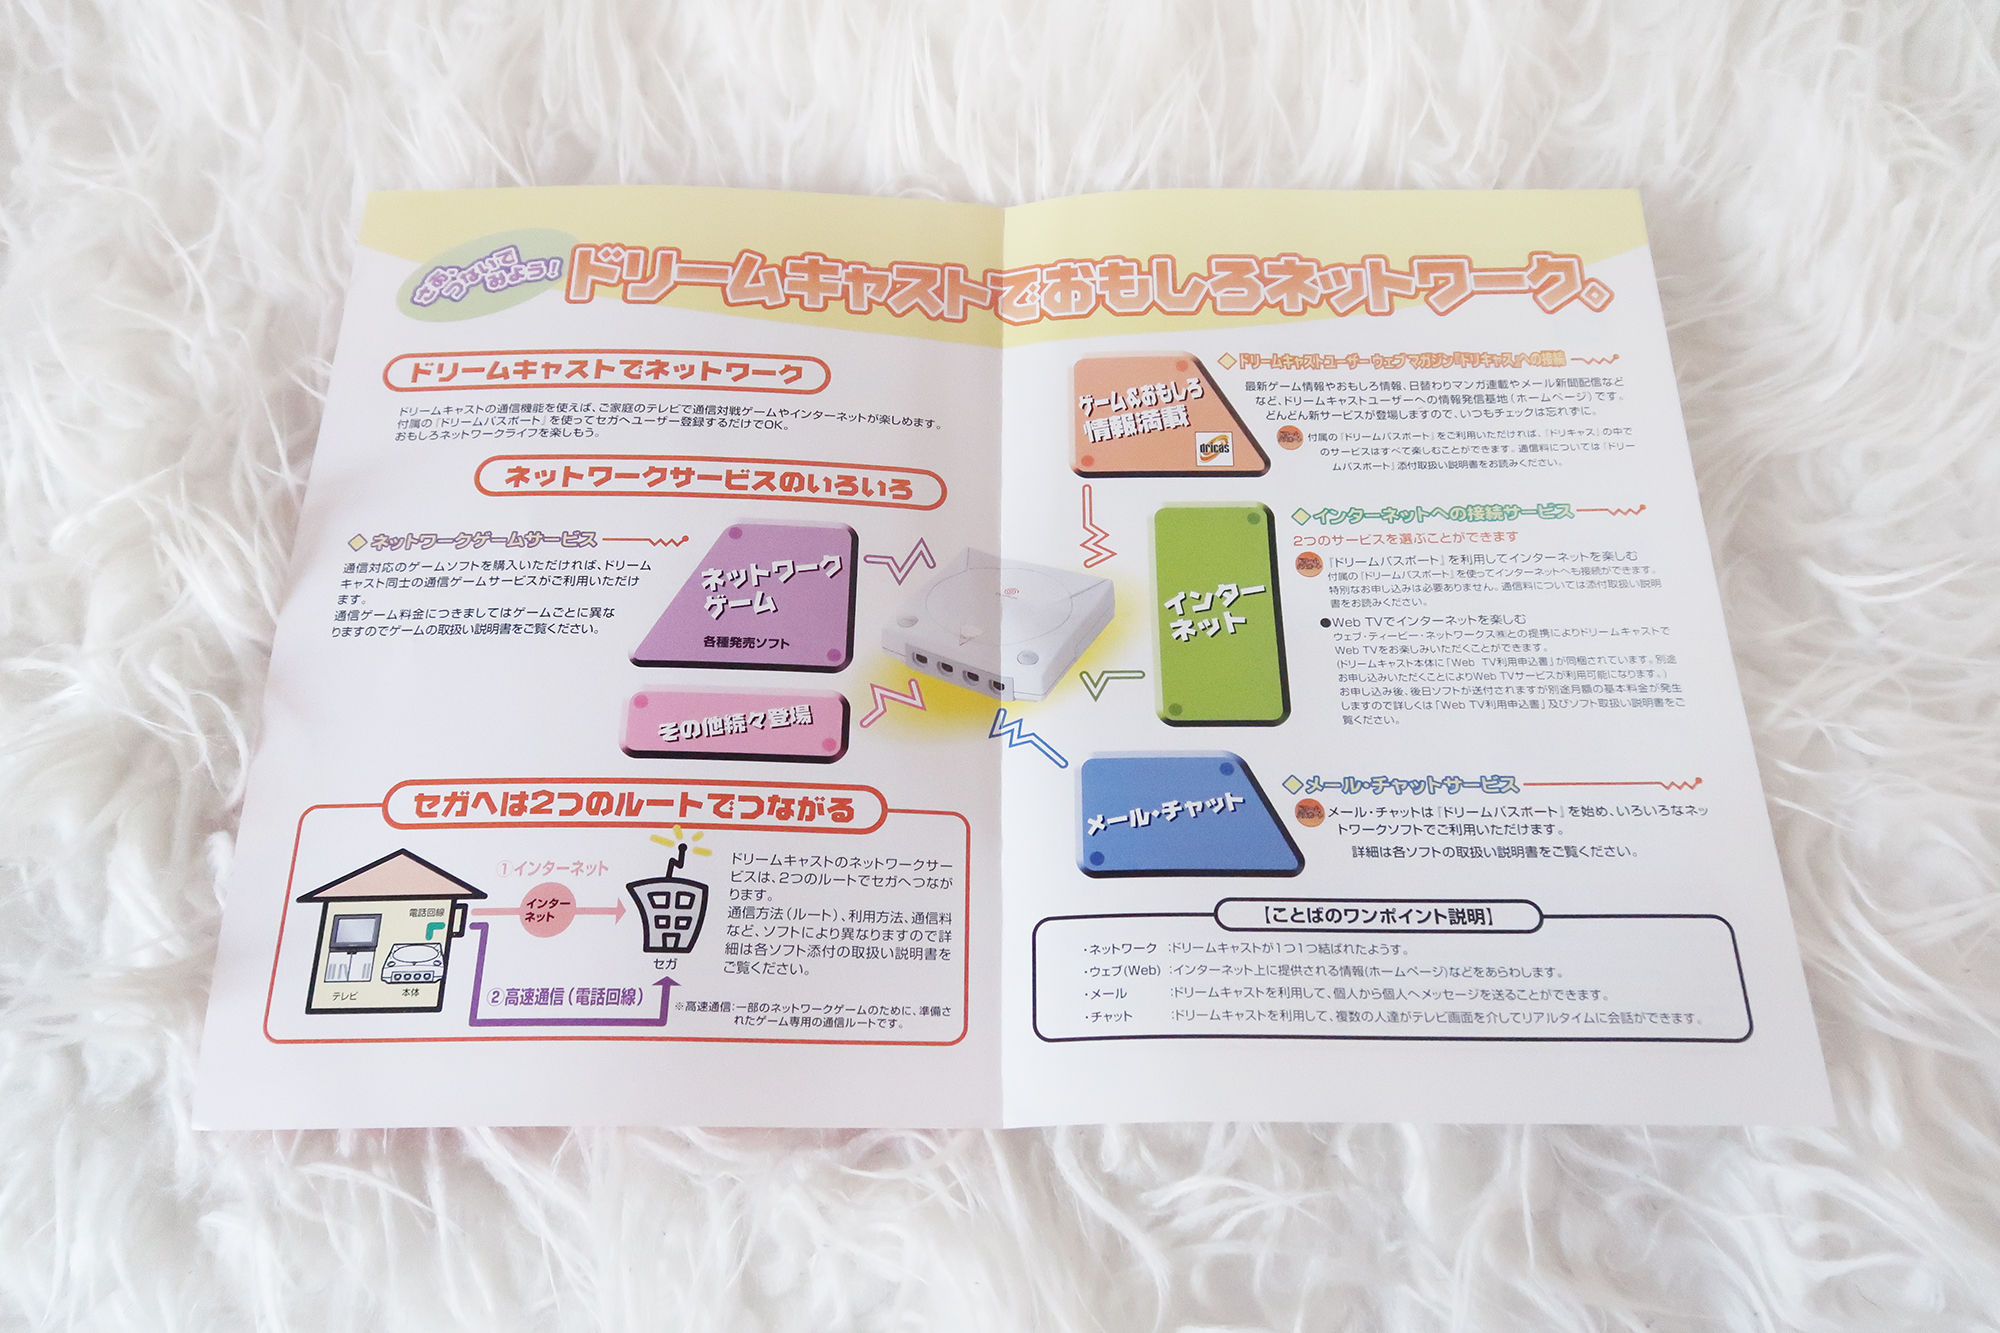 さあ、
つないで
みよう!
ドリームキャストでおもしろネットワーク。
ドリームキャストでネットワーク
ドリームキャストの通信機能を使えば、ご家庭のテレビで通信対戦ゲームやインターネットが楽しめます。
付属の『ドリームパスポート』を使ってセガへユーザー登録するだけでOK。
おもしろネットワークライフを楽しもう。
ネットワークサービスのいろいろ
◆ネットワークゲームサービス
通信対応のゲームソフトを購入いただければ、ドリーム
キャスト同士の通信ゲームサービスがご利用いただけ
ます。
通信ゲーム料金につきましてはゲームごとに異な
りますのでゲームの取扱い説明書をご覧ください。
ネットワーク
ゲーム
各種発売ソフト
その他続々登場
セガへは2つのルートでつながる
①インターネット
インター
ネット
電話回線
テレビ
本体
セガ
②高速通信(電話回線)
ドリームキャストのネットワークサー
ビスは、2つのルートでセガへつなが
ります。
通信方法(ルート)、利用方法、通信料
など、ソフトにより異なりますので詳
細は各ソフト添付の取扱い説明書を
ご覧ください。
※高速通信:一部のネットワークゲームのために、準備さ
れたゲーム専用の通信ルートです。
ゲーム&おもしろ
情報満載
dricas
◆ドリームキャストユーザーウェブマガジン『ドリキャス』への接続
最新ゲーム情報やおもしろ情報、日替わりマンガ連載やメール新聞配信など
など、ドリームキャストユーザーへの情報発信基地(ホームページ)です。
どんどん新サービスが登場しますので、いつもチェックは忘れずに。
付属の『ドリームパスポート』をご利用いただければ、『ドリキャス』の中で
のサービスはすべて楽しむことができます。通信料については『ドリー
ムパスポート』添付取扱い説明書をお読みください。
インター
ネット
◆インターネットへの接続サービス
2つのサービスを選ぶことができます
『ドリームパスポート』を利用してインターネットを楽しむ
付属の『ドリームパスポート』を使ってインターネットへも接続ができます。
特別なお申し込みは必要ありません。通信料については添付取扱い説明
書をお読みください。
●Web TVでインターネットを楽しむ
ウェブ・ティービー・ネットワークス㈱との提携によりドリームキャストで
Web TVをお楽しみいただくことができます。
(ドリームキャスト本体に「Web TV利用申込書」が同梱されています。別途
お申し込みいただくことによりWeb TVサービスが利用可能になります。)
お申し込み後、後日ソフトが送付されますが別途月額の基本料金が発生
しますので詳しくは「Web TV利用申込書」及びソフト取扱い説明書をご
覧ください。
メール・チャット
◆メール・チャットサービス
メール・チャットは『ドリームパスポート』を始め、いろいろなネッ
トワークソフトでご利用いただけます。
詳細は各ソフトの取扱い説明書をご覧ください。
【ことばのワンポイント説明】
・ネットワーク :ドリームキャストが1つ1つ結ばれたようす。
・ウェブ(Web) :インターネット上に提供される情報(ホームページ)などをあらわします。
・メール :ドリームキャストを利用して、個人から個人へメッセージを送ることができます。
・チャット :ドリームキャストを利用して、複数の人達がテレビ画面を介してリアルタイムに会話ができます。